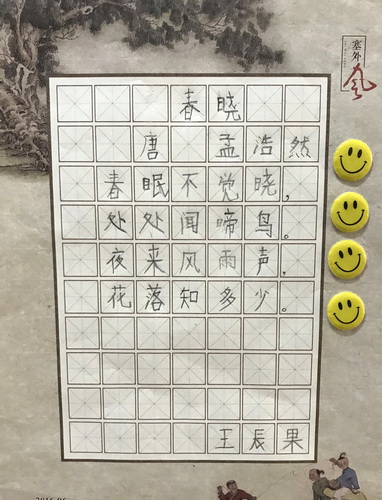 塞外
风
春晓
唐 孟浩然
春眠不觉晓，
处处闻啼鸟。
夜来风雨声，
花落知多少。
王辰果